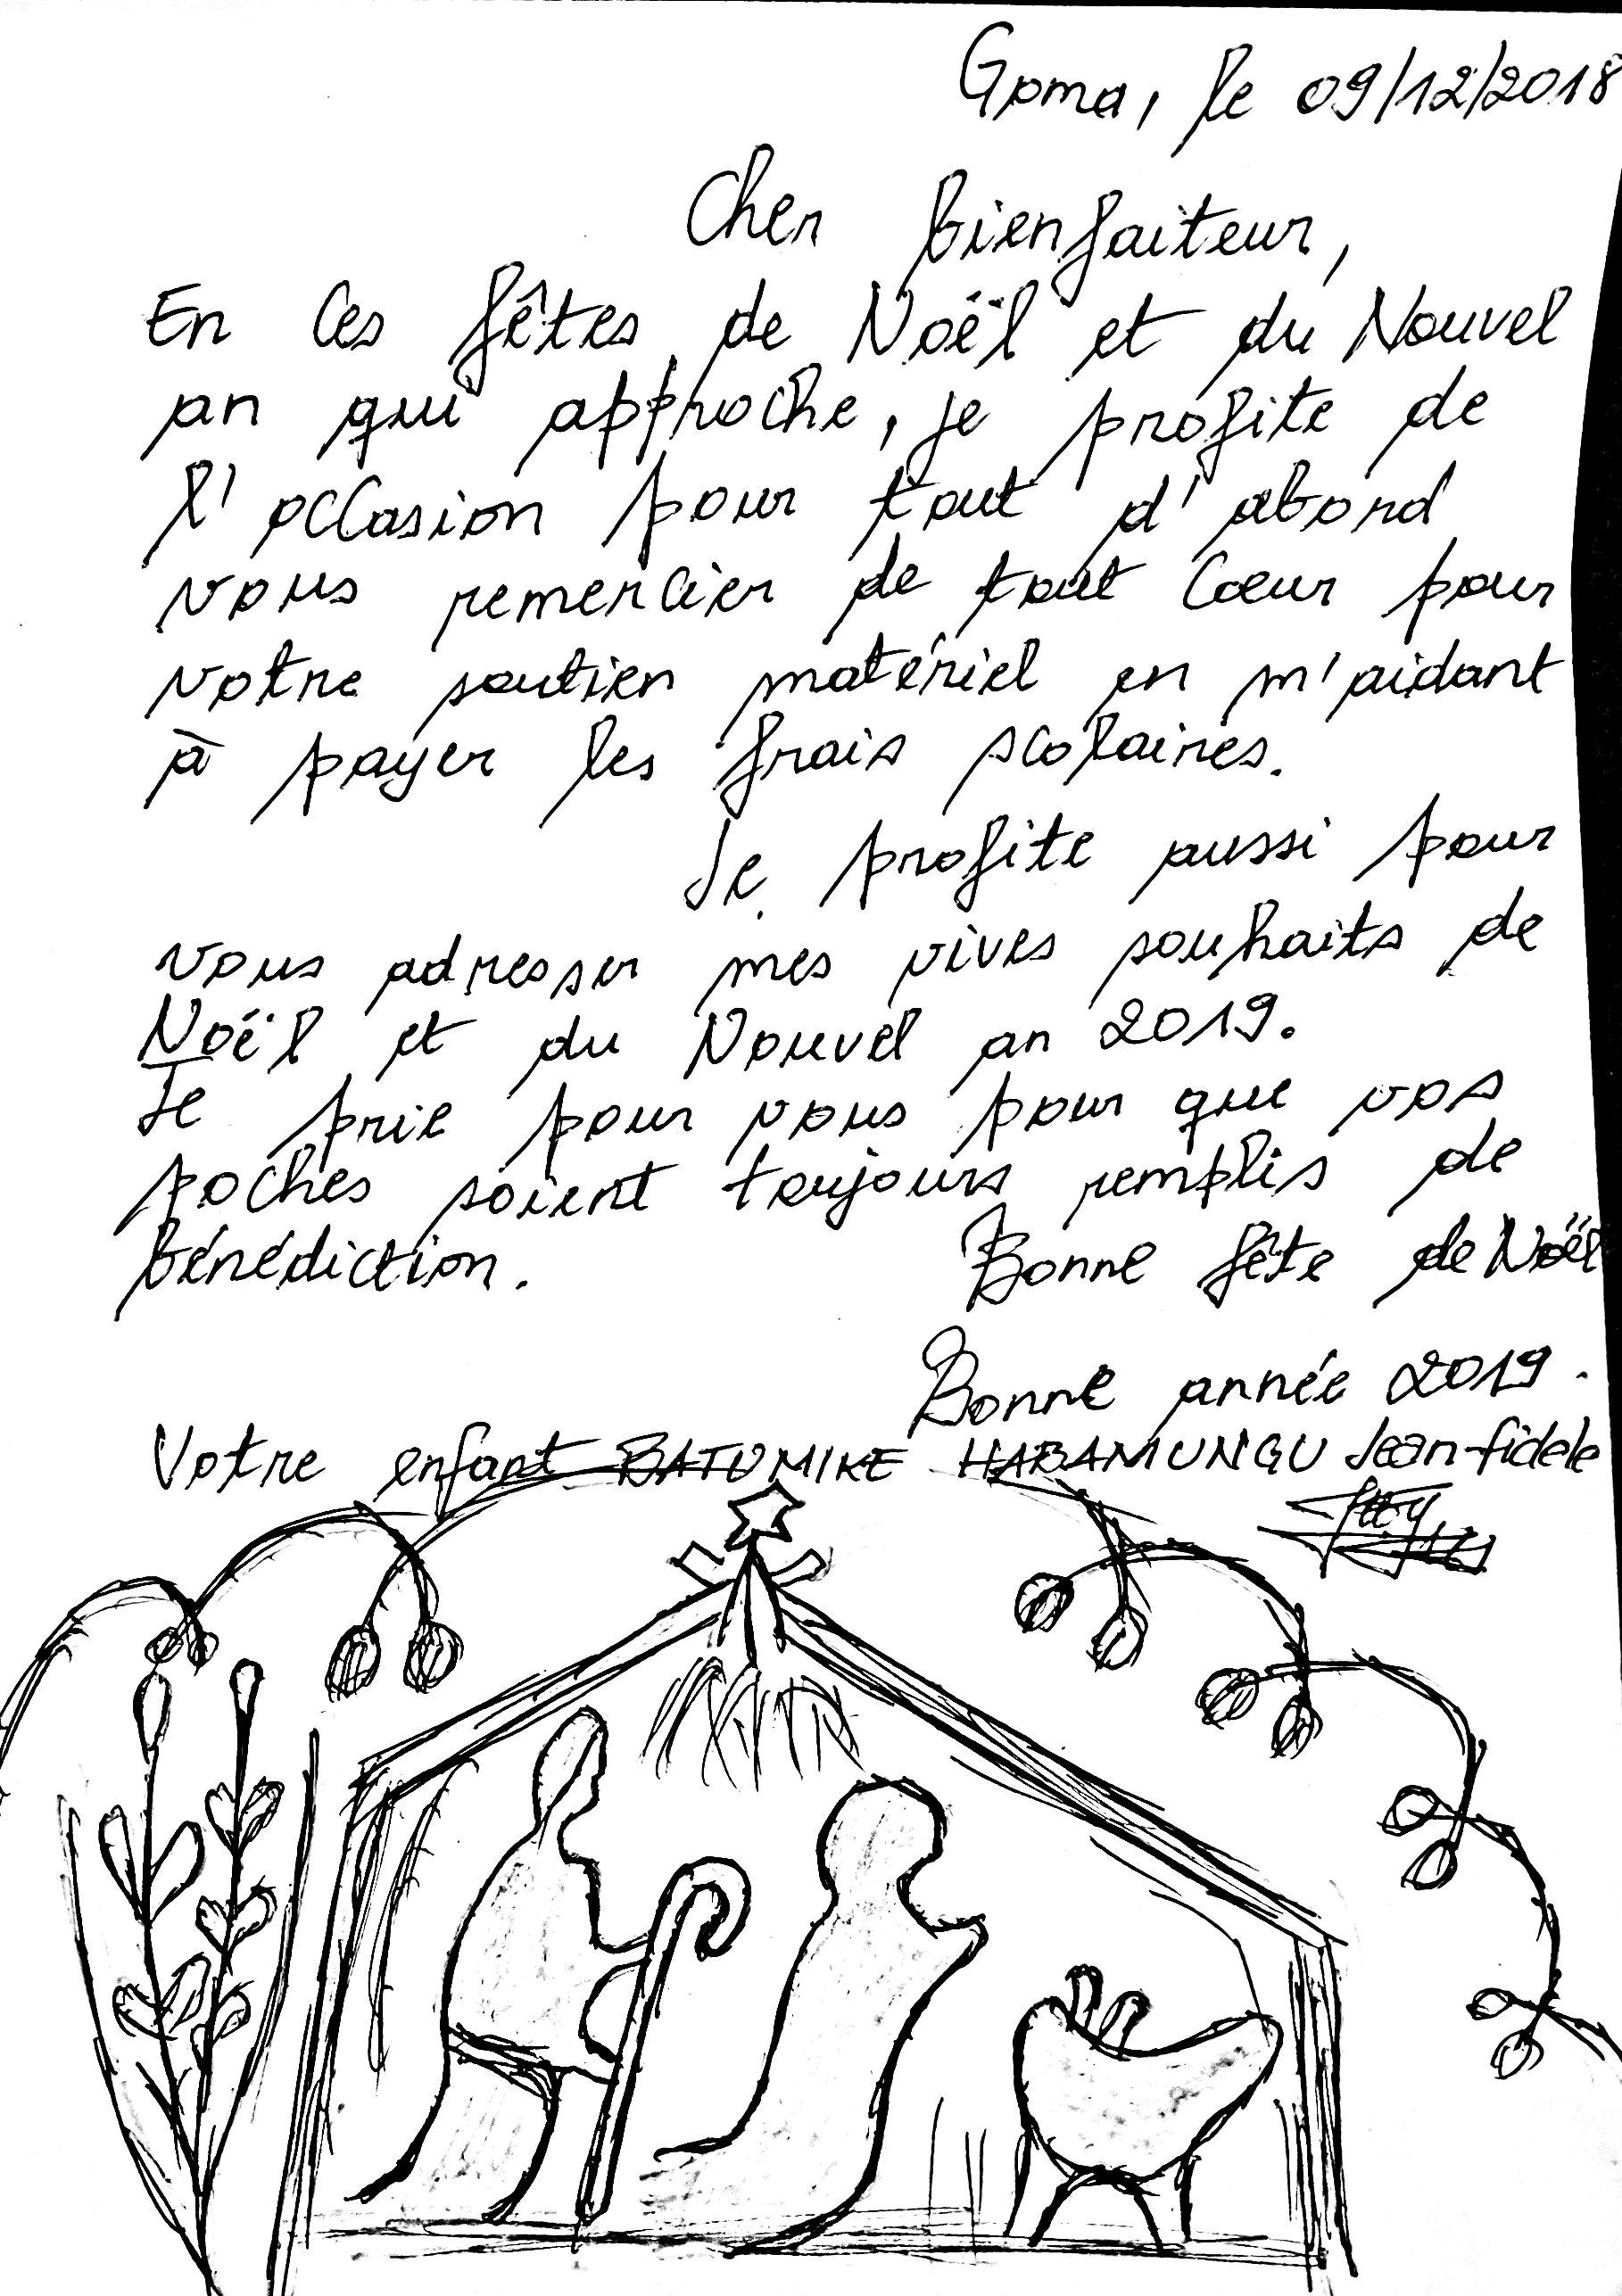 Goma, le 09/12/2018
Cher bienfaiteur,
En ces fêtes de Noël et du Nouvel
an qui approche, je profite de
l'occasion pour tout d'abord
vous remercier de tout cœur pour
votre soutien matériel en m'aidant
à payer les frais scolaires.
Je profite aussi pour
vous adresser mes vives souhaits de
Noël et du Nouvel an 2019.
Je prie pour vous pour que vos
poches soient toujours remplis de
bénédiction. Bonne fête de Noël
Bonne année 2019.
Votre enfant BATUMIKE HABAMUNGU Jean-fidele